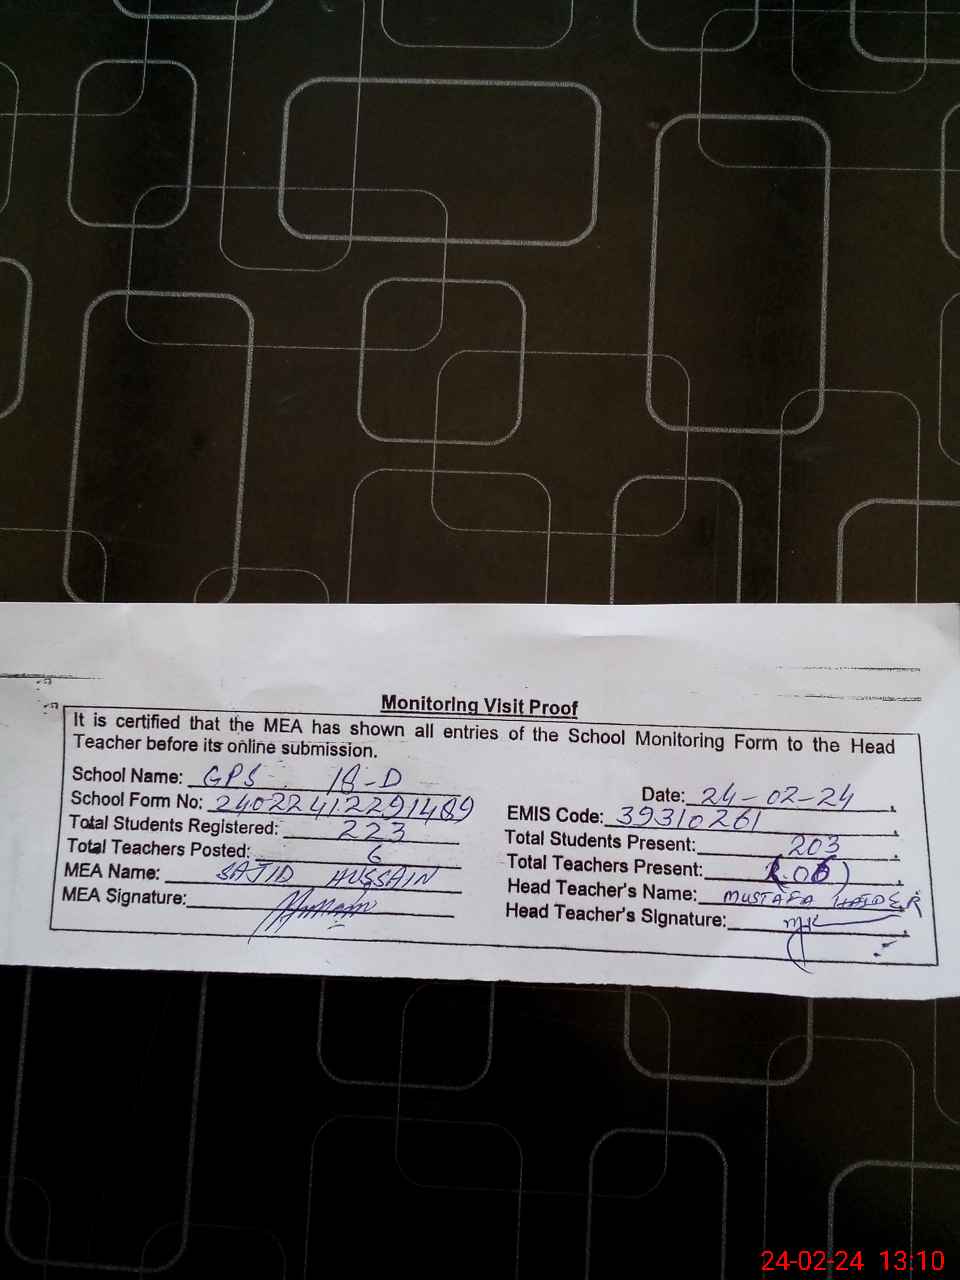 Monitoring Visit Proof
It is certified that the MEA has shown all entries of the School Monitoring Form to the Head
Teacher before its online submission.
School Name: GPS 18-D
Date: 24-02-24
School Form No: 24022412291489
EMIS Code: 39310261
Total Students Registered: 223
Total Students Present: 203
Total Teachers Posted: 6
Total Teachers Present: (06)
MEA Name: SAJID HUSSAIN
Head Teacher's Name: MUSTAFA HAIDER
MEA Signature:
Head Teacher's Signature:
24-02-24 13:10